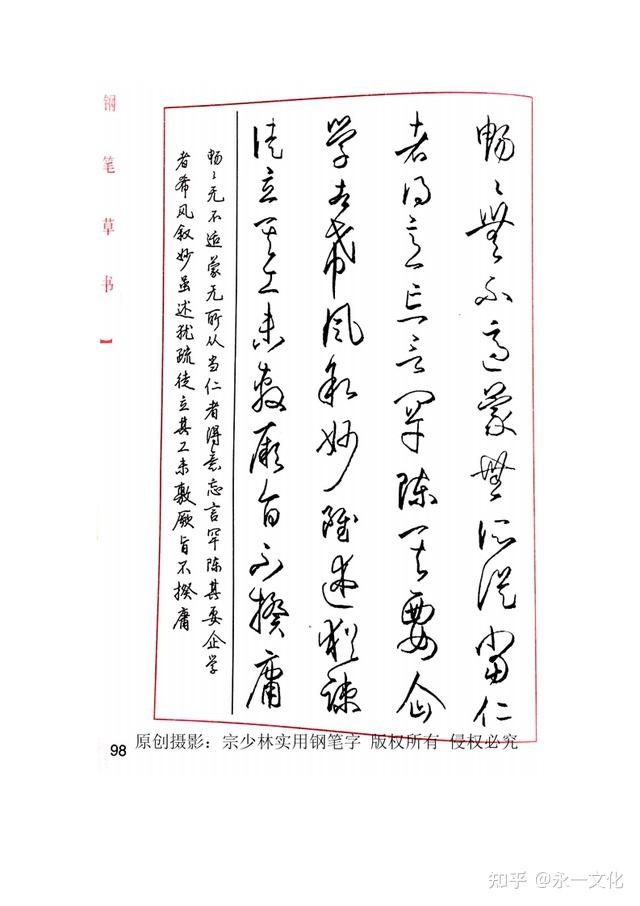 畅々無不適蒙無所從當仁
者得意忘言罕陈其要企
学者希風叙妙雖述猶疎
徒立其工未敷厥旨不揆庸
畅々无不适蒙无所从当仁者得意忘言罕陈其要企学
者希风叙妙虽述犹疏徒立其工未敷厥旨不揆庸
钢笔草书】
98
原创摄影：宗少林实用钢笔字 版权所有 侵权必究
知乎 @永一文化